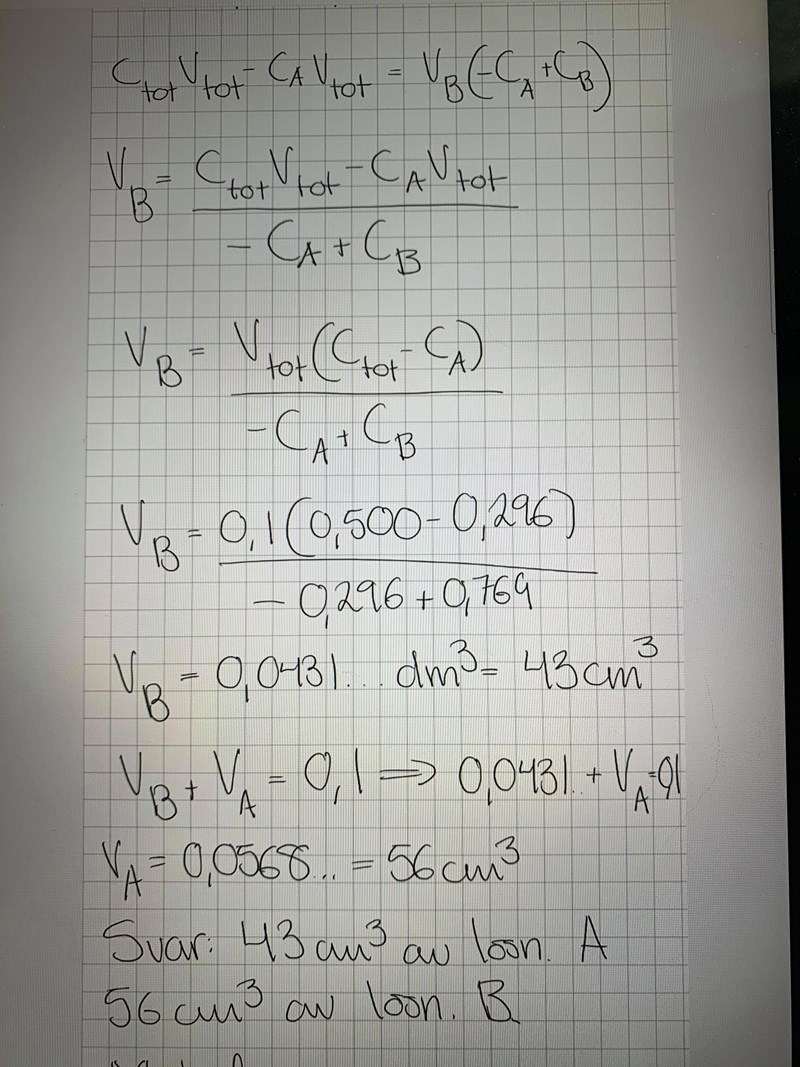 C_tot V_tot - C_A V_tot = V_B(-C_A + C_B)
V_B = (C_tot V_tot - C_A V_tot) / (-C_A + C_B)
V_B = V_tot(C_tot - C_A) / (-C_A + C_B)
V_B = 0,1(0,500 - 0,296) / (-0,296 + 0,769)
V_B = 0,0431... dm³ = 43 cm³
V_B + V_A = 0,1 ⟹ 0,0431.. + V_A = 0,1
V_A = 0,0568... = 56 cm³
Svar: 43 cm³ av lösn. A
56 cm³ av lösn. B